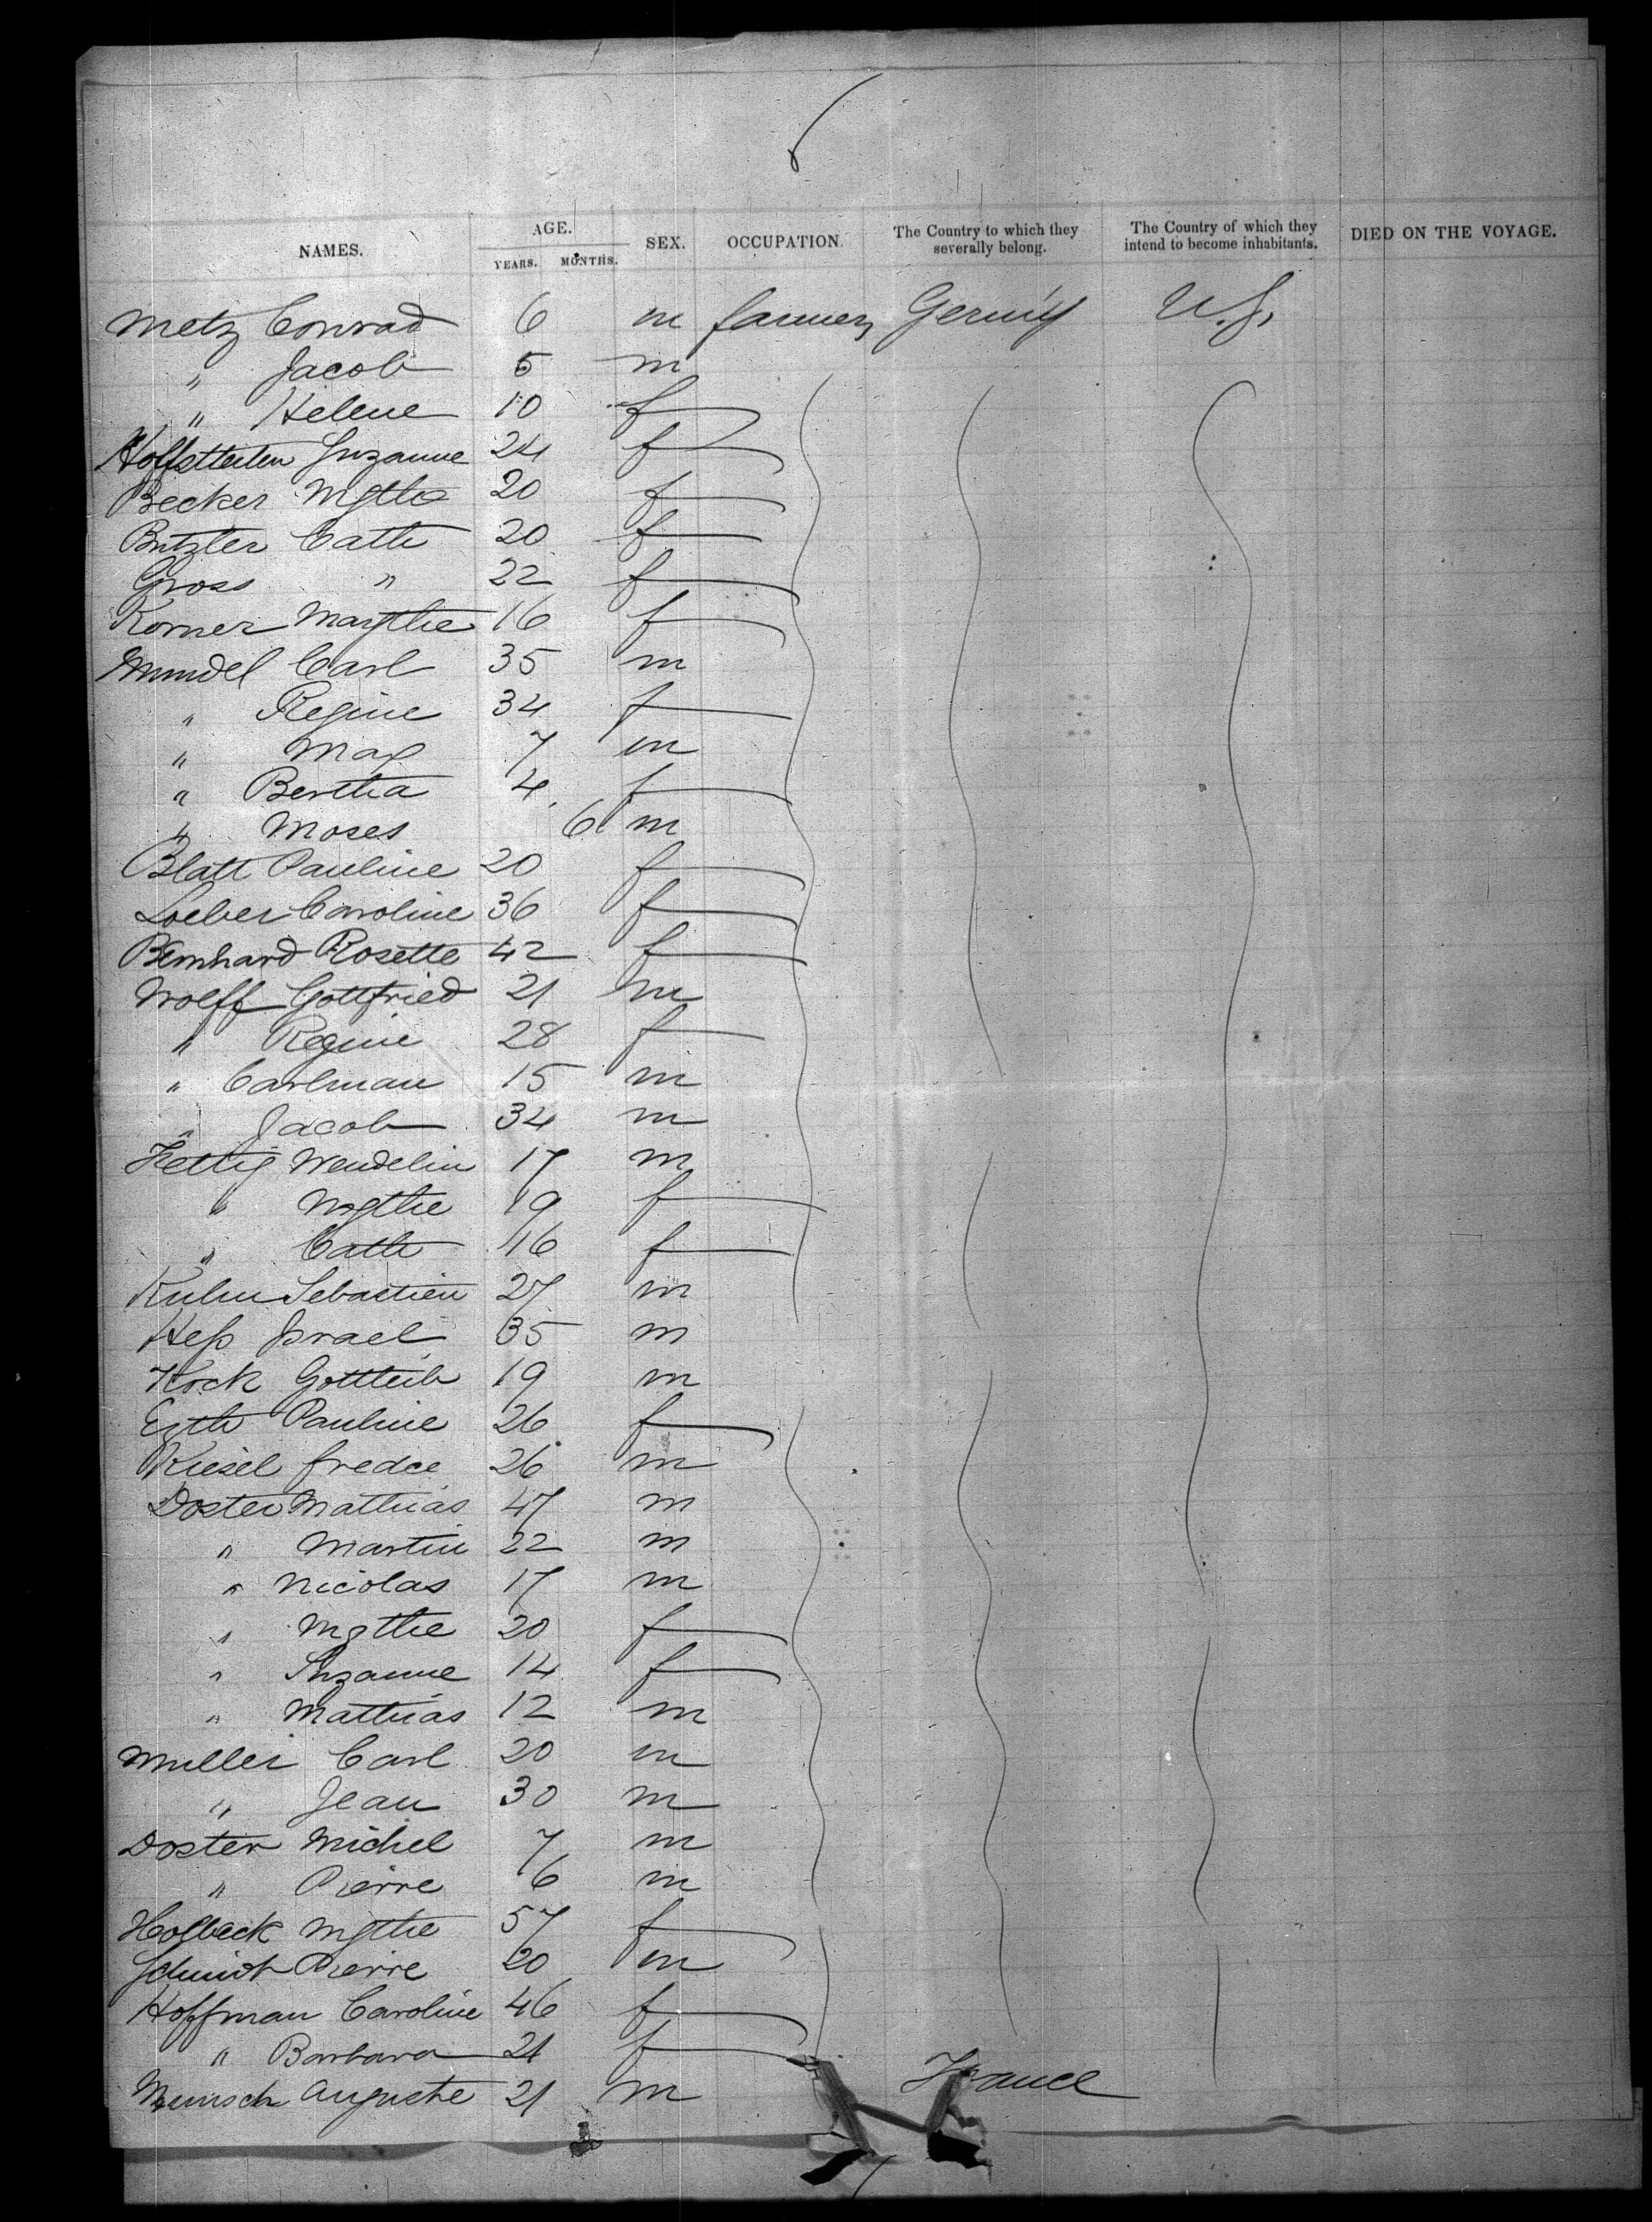 NAMES. AGE. YEARS. MONTHS. SEX. OCCUPATION. The Country to which they severally belong. The Country of which they intend to become inhabitants. DIED ON THE VOYAGE.
Metz Conrad 6 m farmers Germ'y U.S.
" Jacob 5 m
" Helene 10 f
Suzanne 24 f
Becker Mgthe 20 f
Butzler Cath 20 f
Gross " 22 f
Korner Margthe 16 f
Mundel Carl 35 m
" Regine 34 f
" Max 7 m
" Bertha 4 f
" Moses 6 m
Blatt Pauline 20 f
Loeber Caroline 36 f
Bernhard Rosette 42 f
Wolff Gottfried 21 m
" Regine 28 f
" Carlman 15 m
" Jacob 34 m
Hettig Wendelin 17 m
" Mgthe 19 f
" Cath 16 f
Kuhn Sebastien 27 m
Hess Israel 35 m
Kock Gottleib 19 m
Pauline 26 f
Kiesel fredce 26 m
Doster Mathias 47 m
" Martin 22 m
" Nicolas 17 m
" Mgthe 20 f
" Suzanne 14 f
" Mathias 12 m
Muller Carl 20 m
" Jean 30 m
Doster Michel 7 m
" Pierre 6 m
Holbeck Mgthe 57 f
Schmidt Pierre 20 m
Hoffman Caroline 46 f
" Barbara 21 f
Wunsch Auguste 21 m France